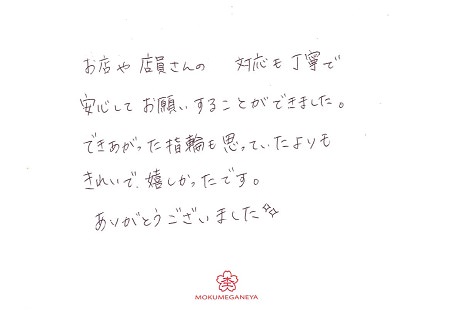 お店や店員さんの 対応も丁寧で
安心してお願いすることができました。
できあがった指輪も思っていたよりも
きれいで、嬉しかったです。
ありがとうございました✨
杢
MOKUMEGANEYA